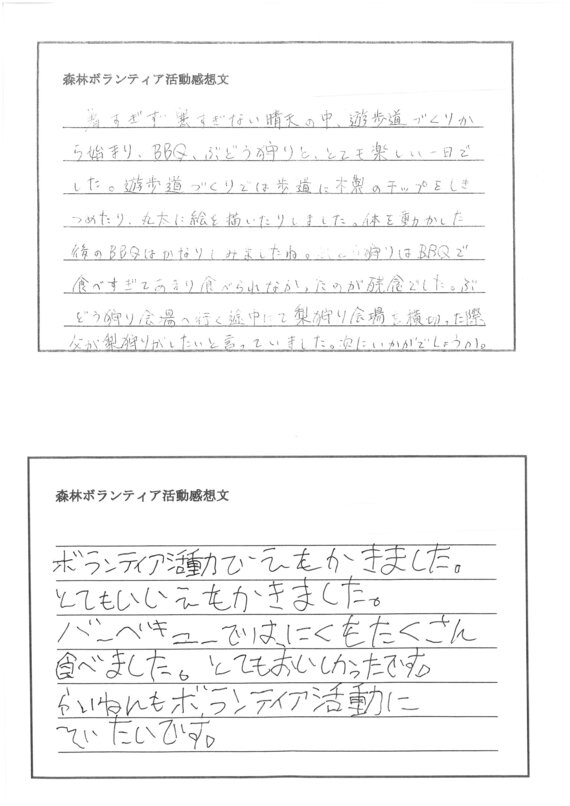 森林ボランティア活動感想文
暑すぎず寒すぎない晴天の中、遊歩道づくりか
ら始まり、BBQ、ぶどう狩りと、とても楽しい一日で
した。遊歩道づくりでは歩道に木製のチップをしき
つめたり、丸太に絵を描いたりしました。体を動かした
後のBBQはかなりしみましたね。ぶどう狩りはBBQで
食べすぎてあまり食べられなかったのが残念でした。ぶ
どう狩り会場へ行く途中にて梨狩り会場を横切った際
父が梨狩りがしたいと言っていました。次にいかがでしょうか。
森林ボランティア活動感想文
ボランティア活動でえをかきました。
とてもいいえをかきました。
バーベキューでは、にくをたくさん
食べました。とてもおいしかったです。
らいねんもボランティア活動に
いたいです。